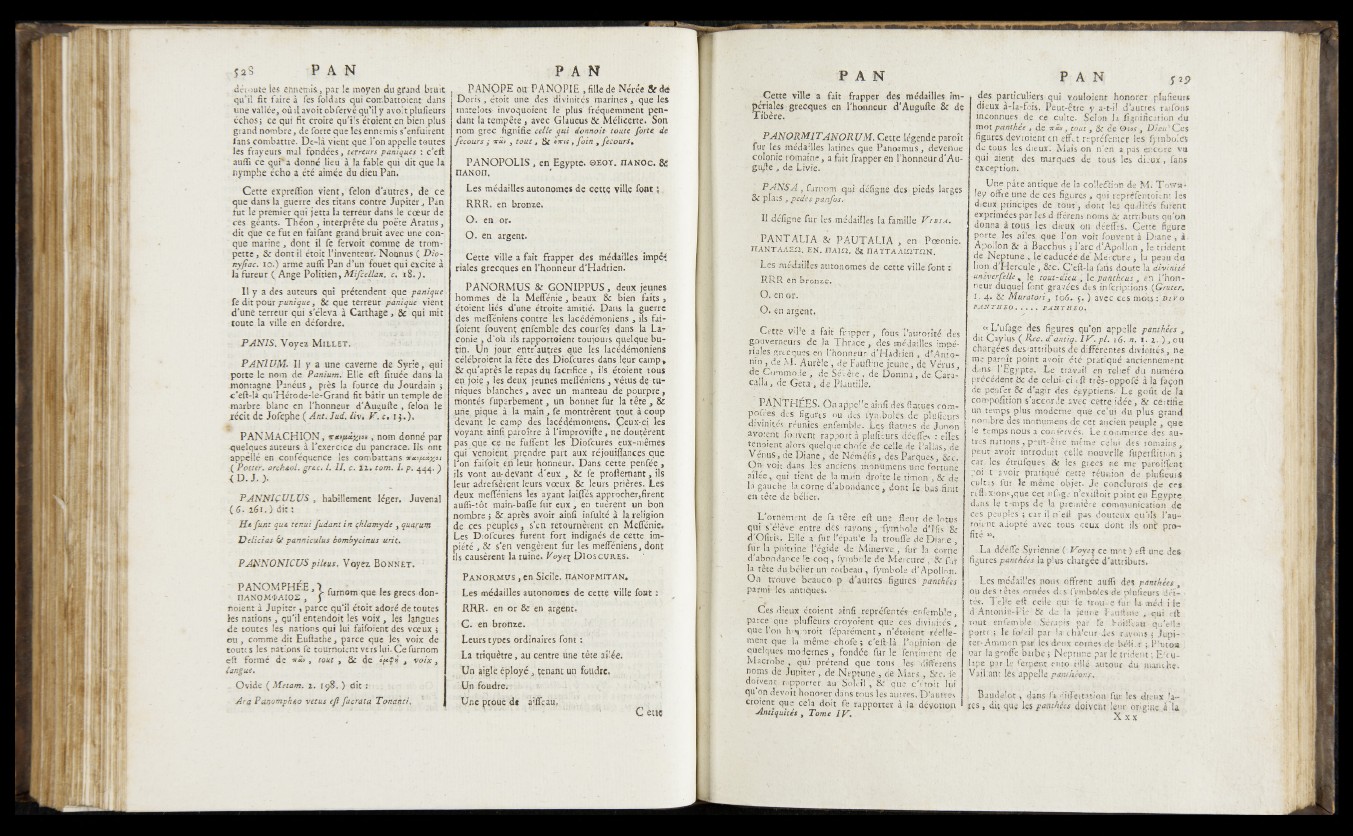 528 PAN
PAN
déroute les ennemis, par le moyen du grand bruit
qu'il fit faire à ses soldats qui combattoient dans
une vallée, où il avoit observé qu'il y avoit plusieurs
échos; ce qui fit croire qu'ils étoient en bien plus
grand nombre, de sorte que les ennemis s'enfuirent
sans combattre. De-là vient que l'on appelle toutes
les frayeurs mal fondées, terreurs paniques : c'est
aussi ce qui a donné lieu à la fable qui dit que la
nymphe écho a été aimée du dieu Pan.
Cette expression vient, selon d'autres, de ce
que dans la guerre des titans contre Jupiter, Pan
fut le premier qui jetta la terreur dans le cœur de
ces géants. Théon, interprête du poëte Aratus,
dit que ce fut en faisant grand bruit avec une con-
que marine, dont il se servoit comme de trom-
pette, & dont il étoit l'inventeur. Nonnus ( Dio-
nysiac. 10.) arme aussi Pan d'un fouet qui excite à
la fureur ( Ange Politien, Miscellan. c. 18.).
Il y a des auteurs qui prétendent que panique
se dit pour punique, & que terreur panique vient
d'une terreur qui s'éleva à Carthage, & qui mit
toute la ville en désordre.
PANIS. Voyez MILLET.
PANIUM. Il y a une caverne de Syrie, qui
porte le nom de Panium. Elle est située dans la
montagne Panéus, près la source du Jourdain ;
c'est-là qu'Hérode-le-Grand fit bâtir un temple de
marbre blanc en l'honneur d'Auguste, selon le
récit de Josephe ( Ant. Jud. liv. V. c. 13.).
PANMACHION, παμμάχιον, nom donné par
quelques auteurs à l'exercice du pancrace. Ils ont
appellé en conséquence les combattans παμμάχοι
( Potter. archæol. græc. l. II. c. 21. tom. I. p. 444. )
( D. J. ).
PANNICULUS, habillement léger. Juvenal
( 6. 261. ) dit :
Hæ sunt quæ tenui sudant in chlamyde, quarum
Delicias & panniculus bombycinus urit.
PANNONICUS pileus. Voyez BONNET.
PANOMPHÉE, }
ΠΑΝΟΜΦΑΙΟΣ, } surnom que les grecs don-
noient à Jupiter, parce qu'il étoit adoré de toutes
les nations, qu'il entendoit les voix, les langues
de toutes les nations qui lui faisoient des vœux ;
ou, comme dit Eustathe, parce que les voix de
toutes les nations se tournoient vers lui. Ce surnom
est formé de πᾶν, tout, & de ὀμφὴ, voix,
langue.
Ovide ( Metam. 2. 198. ) dit :
Ara Panomphæo vetus est sacrata Tonanti.
PANOPE ou PANOPIE, fille de Nérée & de
Doris, étoit une des divinités marines, que les
matelots invoquoient le plus fréquemment pen-
dant la tempête, avec Glaucus & Mélicerte. Son
nom grec signifie celle qui donnoit toute sorte de
secours ; πᾶν, tout, & ὄπις, soin, secours.
PANOPOLIS, en Egypte. ΘΕΟΥ. ΠΑΝΟC. &
ΠΑΝΟΠ.
Les médailles autonomes de cette ville sont :
RRR. en bronze.
O. en or.
O. en argent.
Cette ville a fait frapper des médailles impé-
riales grecques en l'honneur d'Hadrien.
PANORMUS & GONIPPUS, deux jeunes
hommes de la Messénie, beaux & bien faits,
étoient liés d'une étroite amitié. Dans la guerre
des messéniens contre les lacédémoniens, ils fai-
soient souvent ensemble des courses dans la La-
conie, d'où ils rapportoient toujours quelque bu-
tin. Un jour entr'autres que les lacédémoniens
célébroient la fête des Dioscures dans leur camp,
& qu'après le repas du sacrifice, ils étoient tous
en joie, les deux jeunes messéniens, vêtus de tu-
niques blanches, avec un manteau de pourpre,
montés superbement, un bonnet sur la tête, &
une pique à la main, se montrèrent tout à coup
devant le camp des lacédémoniens. Ceux-ci les
voyant ainsi paroître à l'improviste, ne doutèrent
pas que ce ne fussent les Dioscures eux-mêmes
qui venoient prendre part aux réjouissances que
l'on faisoit en leur honneur. Dans cette pensée,
ils vont au-devant d'eux, & se prosternant, ils
leur adressèrent leurs vœux & leurs prières. Les
deux messéniens les ayant laissés approcher, firent
aussi-tôt main-basse sur eux, en tuèrent un bon
nombre ; & après avoir ainsi insulté à la religion
de ces peuples, s'en retournèrent en Messénie.
Les Dioscures furent fort indignés de cette im-
piété, & s'en vengèrent sur les messéniens, dont
ils causèrent la ruine. Voyez DIOSCURES.
PANORMUS, en Sicile. ΠΑΝΟΡΜΙΤΑΝ.
Les médailles autonomes de cette ville sont :
RRR. en or & en argent.
C. en bronze.
Leurs types ordinaires sont :
La triquètre, au centre une tête ailée.
Un aigle éployé, tenant un foudre.
Un foudre.
Une proue de vaisseau.
Cette
PAN
PAN 529
Cette ville a fait frapper des médailles im-
périales grecques en l'honneur d'Auguste & de
Tibère.
PANORMITANORUM. Cette légende paroît
sur les médailles latines que Panormus, devenue
colonie romaine, a fait frapper en l'honneur d'Au-
guste, de Livie.
PANSA, surnom qui désigne des pieds larges
& plats, pedes pansos.
Il désigne sur les médailles la famille VIBIA.
PANTALIA & PAUTALIA, en Pœonie.
ΠΑΝΤΑΛΕΩ. ΕΝ. ΠΑΙΩ. & ΠΑΥΤΑΛΙΩΤΩΝ.
Les médailles autonomes de cette ville sont :
RRR en bronze.
O. en or.
O. en argent.
Cette ville a fait frapper, sous l'autorité des
gouverneurs de la Thrace, des médailles impé-
riales grecques en l'honneur d'Hadrien, d'Anto-
nin, de M. Aurèle, de Faustine jeune, de Vérus,
de Commode, de Sévère, de Domna, de Cara-
calla, de Geta, de Plautille.
PANTHÉES. On appelle ainsi des statues com-
posées des figures ou des symboles de plusieurs
divinités réunies ensemble. Les statues de Junon
avoient souvent rapport à plusieurs déesses : elles
tenoient alors quelque chose de celle de Pallas, de
Vénus, de Diane, de Némésis, des Parques, &c.
On voit dans les anciens monumens une fortune
ailée, qui tient de la main droite le timon, & de
la gauche la corne d'abondance, dont le bas finit
en tête de bélier.
L'ornement de sa tête est une fleur de lotus
qui s'élève entre des rayons, symbole d'Isis &
d'Osiris. Elle a sur l'épaule la trousse de Diane,
sur la poitrine l'égide de Minerve, sur la corne
d'abondance le coq, symbole de Mercure, & sur
la tête du bélier un corbeau, symbole d'Apollon.
On trouve beaucoup d'autres figures panthées
parmi les antiques.
Ces dieux étoient ainsi représentés ensemble,
parce que plusieurs croyoient que ces divinités,
que l'on honoroit séparément, n'étoient réelle-
ment que la même chose ; c'est-là l'opinion de
quelques modernes, fondée sur le sentiment de
Macrobe, qui prétend que tous les différens
noms de Jupiter, de Neptune, de Mars, &c. se
doivent rapporter au Soleil, & que c'étoit lui
qu'on devoit honorer dans tous les autres. D'autres
croient que cela doit se rapporter à la dévotion
Antiquités, Tome IV.
des particuliers qui vouloient honorer plusieurs
dieux à-la-fois. Peut-être y a-t-il d'autres raisons
inconnues de ce culte. Selon la signification du
mot panthée, de πᾶν, tout, & de Θεος, Dieu. Ces
figures devroient en effet représenter les symboles
de tous les dieux. Mais on n'en a pas encore vu
qui aient des marques de tous les dieux, sans
exception.
Une pâte antique de la collection de M. Town-
ley offre une de ces figures, qui représentoient les
dieux principes de tout, dont les qualités furent
exprimées par les différens noms & attributs qu'on
donna à tous les dieux ou déesses. Cette figure
porte les ailes que l'on voit souvent à Diane, à
Apollon & à Bacchus ; l'arc d'Apollon, le trident
de Neptune, le caducée de Mercure, la peau du
lion d'Hercule, &c. C'est-là sans doute la divinité
universelle, le tout-dieu, le pantheus, en l'hon-
neur duquel sont gravées des inscriptions (Gruter.
1. 4. & Muratori, 106. 5. ) avec ces mots : DIVO
PANTHEO..... PANTHEO.
« L'usage des figures qu'on appelle panthées,
dit Caylus ( Rec. d'antiq. IV. pl. 16. n. 1. 2. ), ou
chargées des attributs de différentes divinités, ne
me paroît point avoir été pratiqué anciennement
dans l'Egypte. Le travail en relief du numéro
précédent & de celui-ci est très-opposé à la façon
de penser & d'agir des égyptiens. Le goût de la
composition s'accorde avec cette idée, & certifie
un temps plus moderne que celui du plus grand
nombre des monumens de cet ancien peuple, que
le temps nous a conservés. Le commerce des au-
tres nations, peut-être même celui des romains,
peut avoir introduit cette nouvelle superstition ;
car les étrusques & les grecs ne me paroissent
point avoir pratiqué cette réunion de plusieurs
cultes sur le même objet. Je conclurois de ces
réflexions, que cet usage n'existoit point en Egypte
dans le temps de la première communication de
ces peuples ; car il n'est pas douteux qu'ils l'au-
roient adopté avec tous ceux dont ils ont pro-
fité ».
La déesse Syrienne ( Voyez ce mot ) est une des
figures panthées la plus chargée d'attributs.
Les médailles nous offrent aussi des panthées,
ou des têtes ornées des symboles de plusieurs déi-
tés. Telle est celle qui se trouve sur la médaille
d'Antonin-Pie & de la jeune Faustine, qui est
tout ensemble Sérapis par le boisseau qu'elle
porte ; le soleil par la chaleur des rayons ; Jupi-
ter-Ammon par les deux cornes de bélier ; Pluton
par la grosse barbe ; Neptune par le trident ; Escu-
lape par le serpent entortillé autour du manche.
Vaillant les appelle panthéons.
Baudelot, dans sa dissertation sur les dieux la-
res, dit que les panthées doivent leur origine à la
X x x